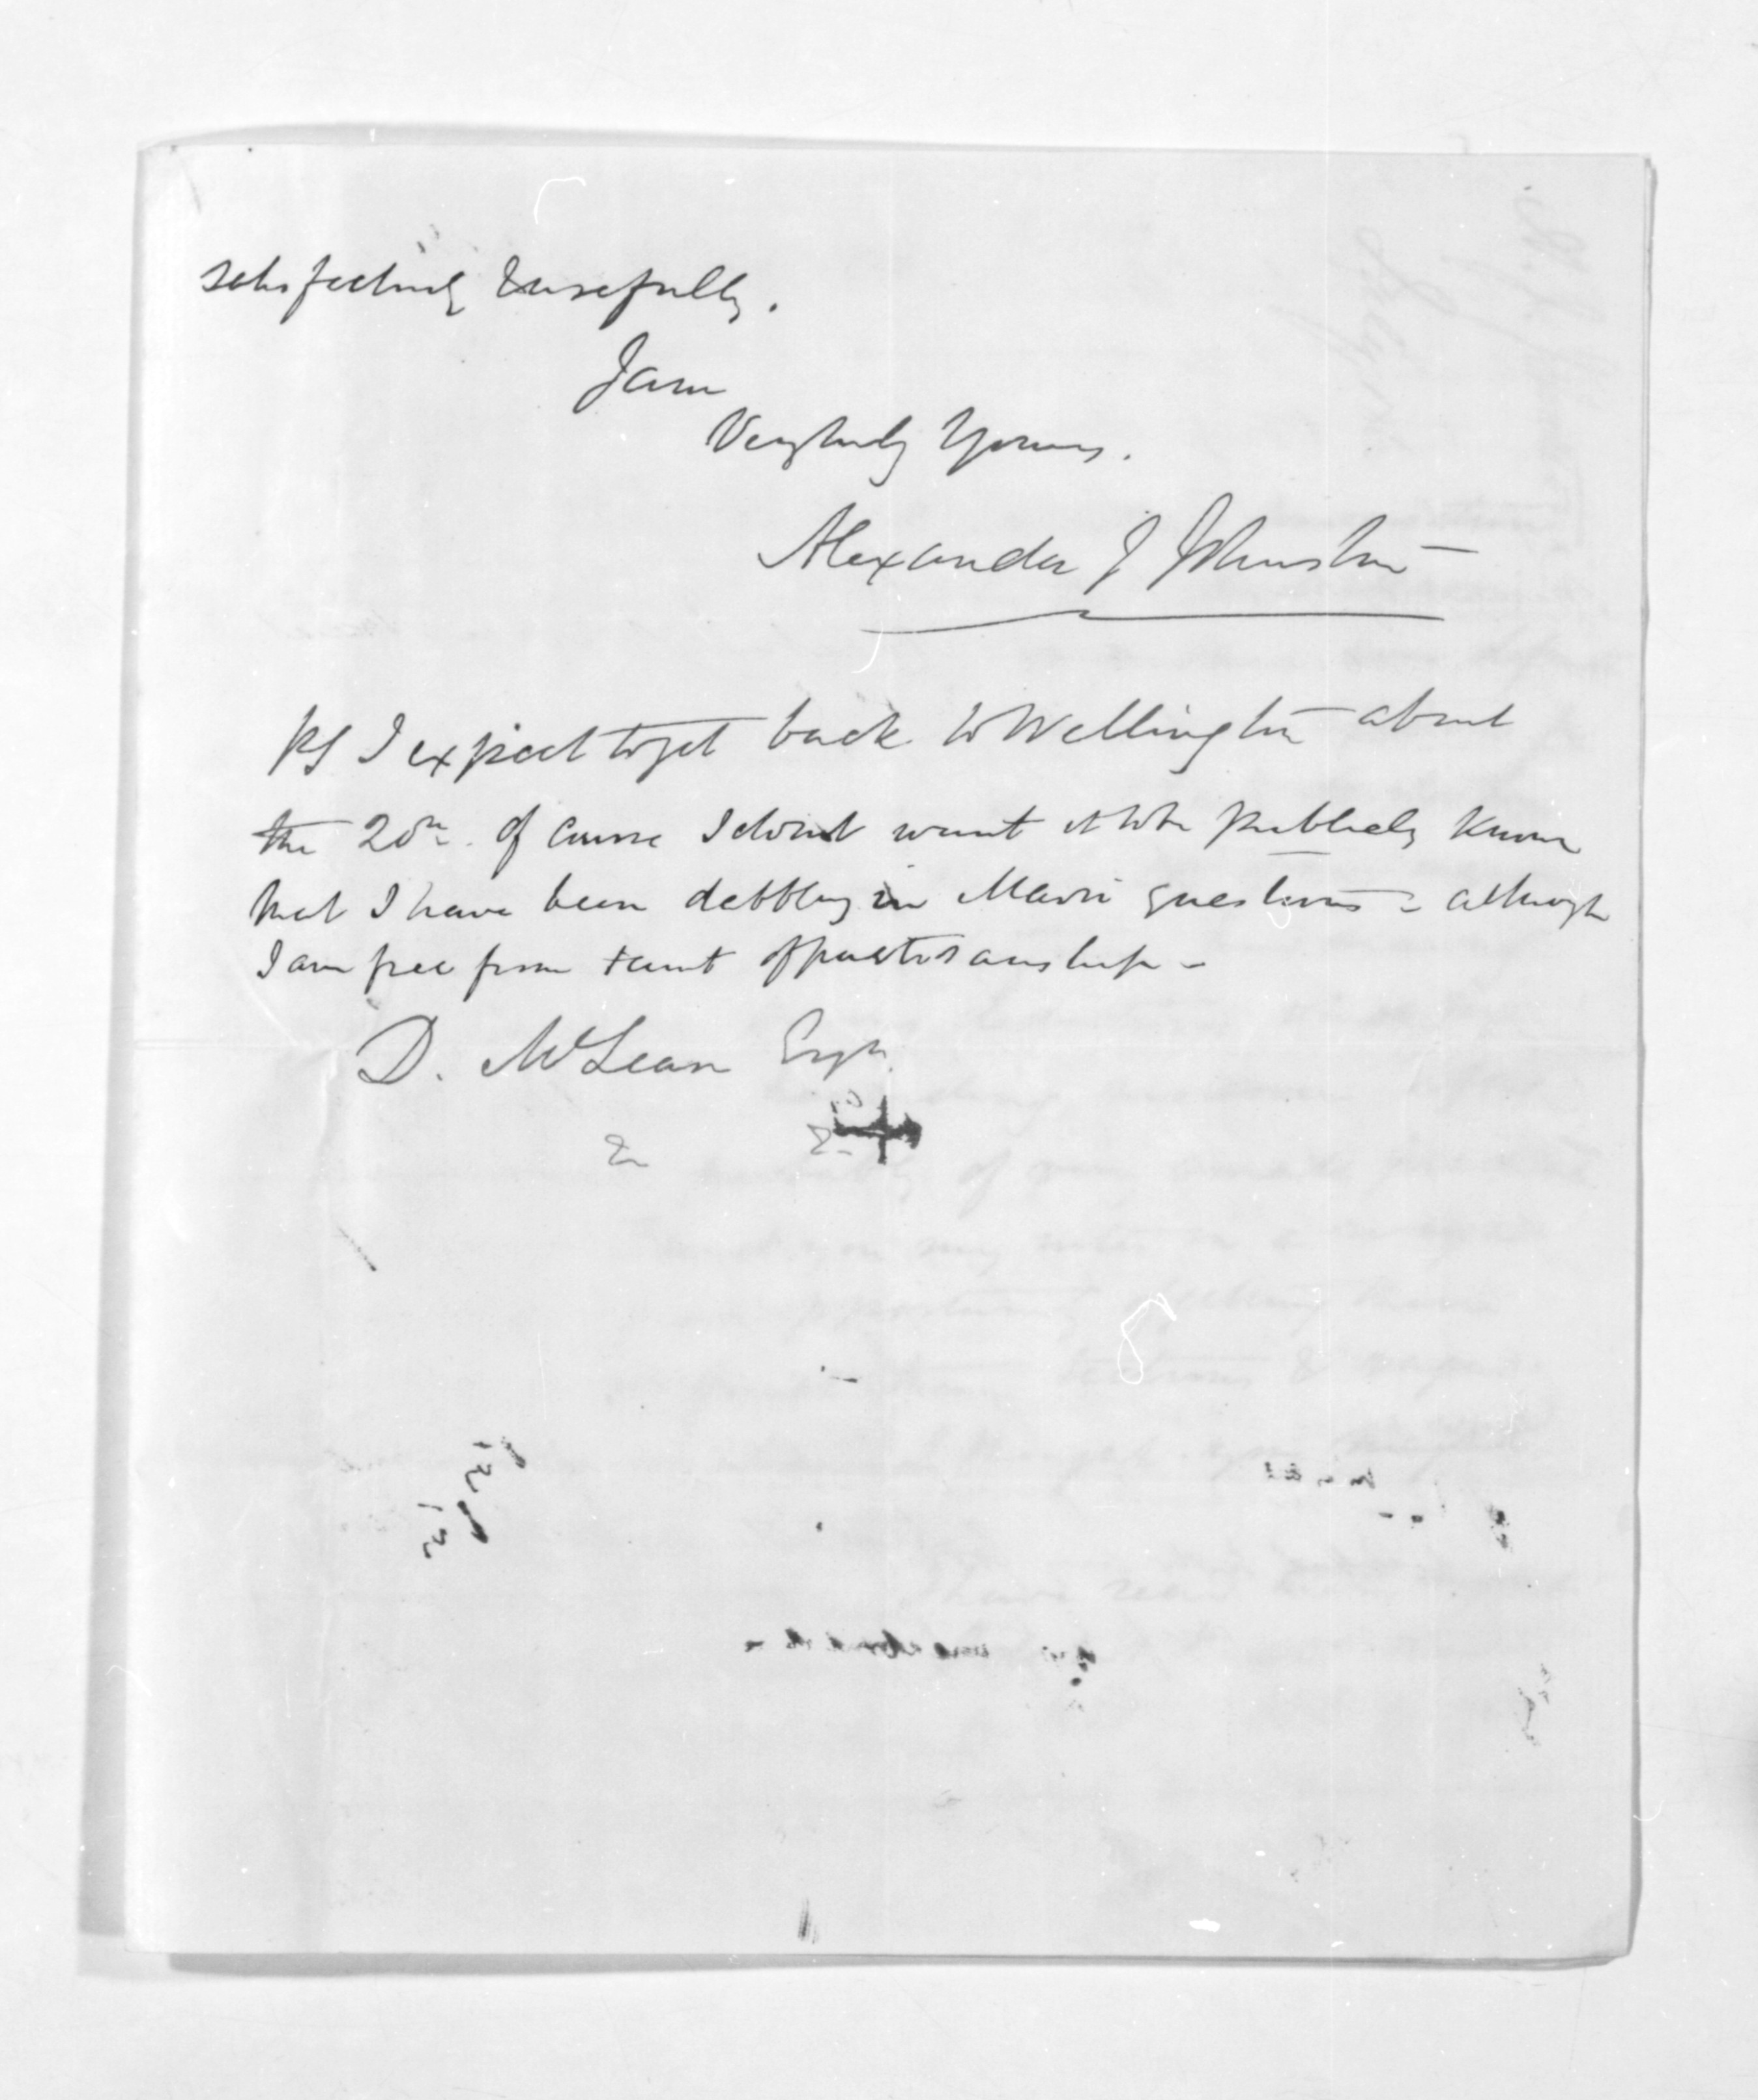 satisfactorily & usefully.
I am
Very truly Yours.
Alexander J Johnston
PS I expect to get back to Wellington about
the 20th. Of course I don't want it to be publicly known
that I have been dabbling in Maori questions - although
I am free from taint of partisanship -
D. McLean Esqr.
&c &c